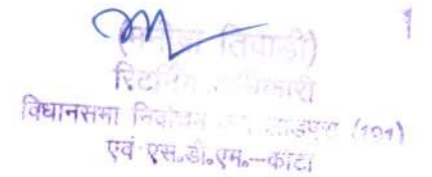 1
तिवाडी)
रिटर्निंग अधिकारी
विधानसभा निर्वाचन लाडपुरा (191)
एवं एस.डी.एम.--कोटा